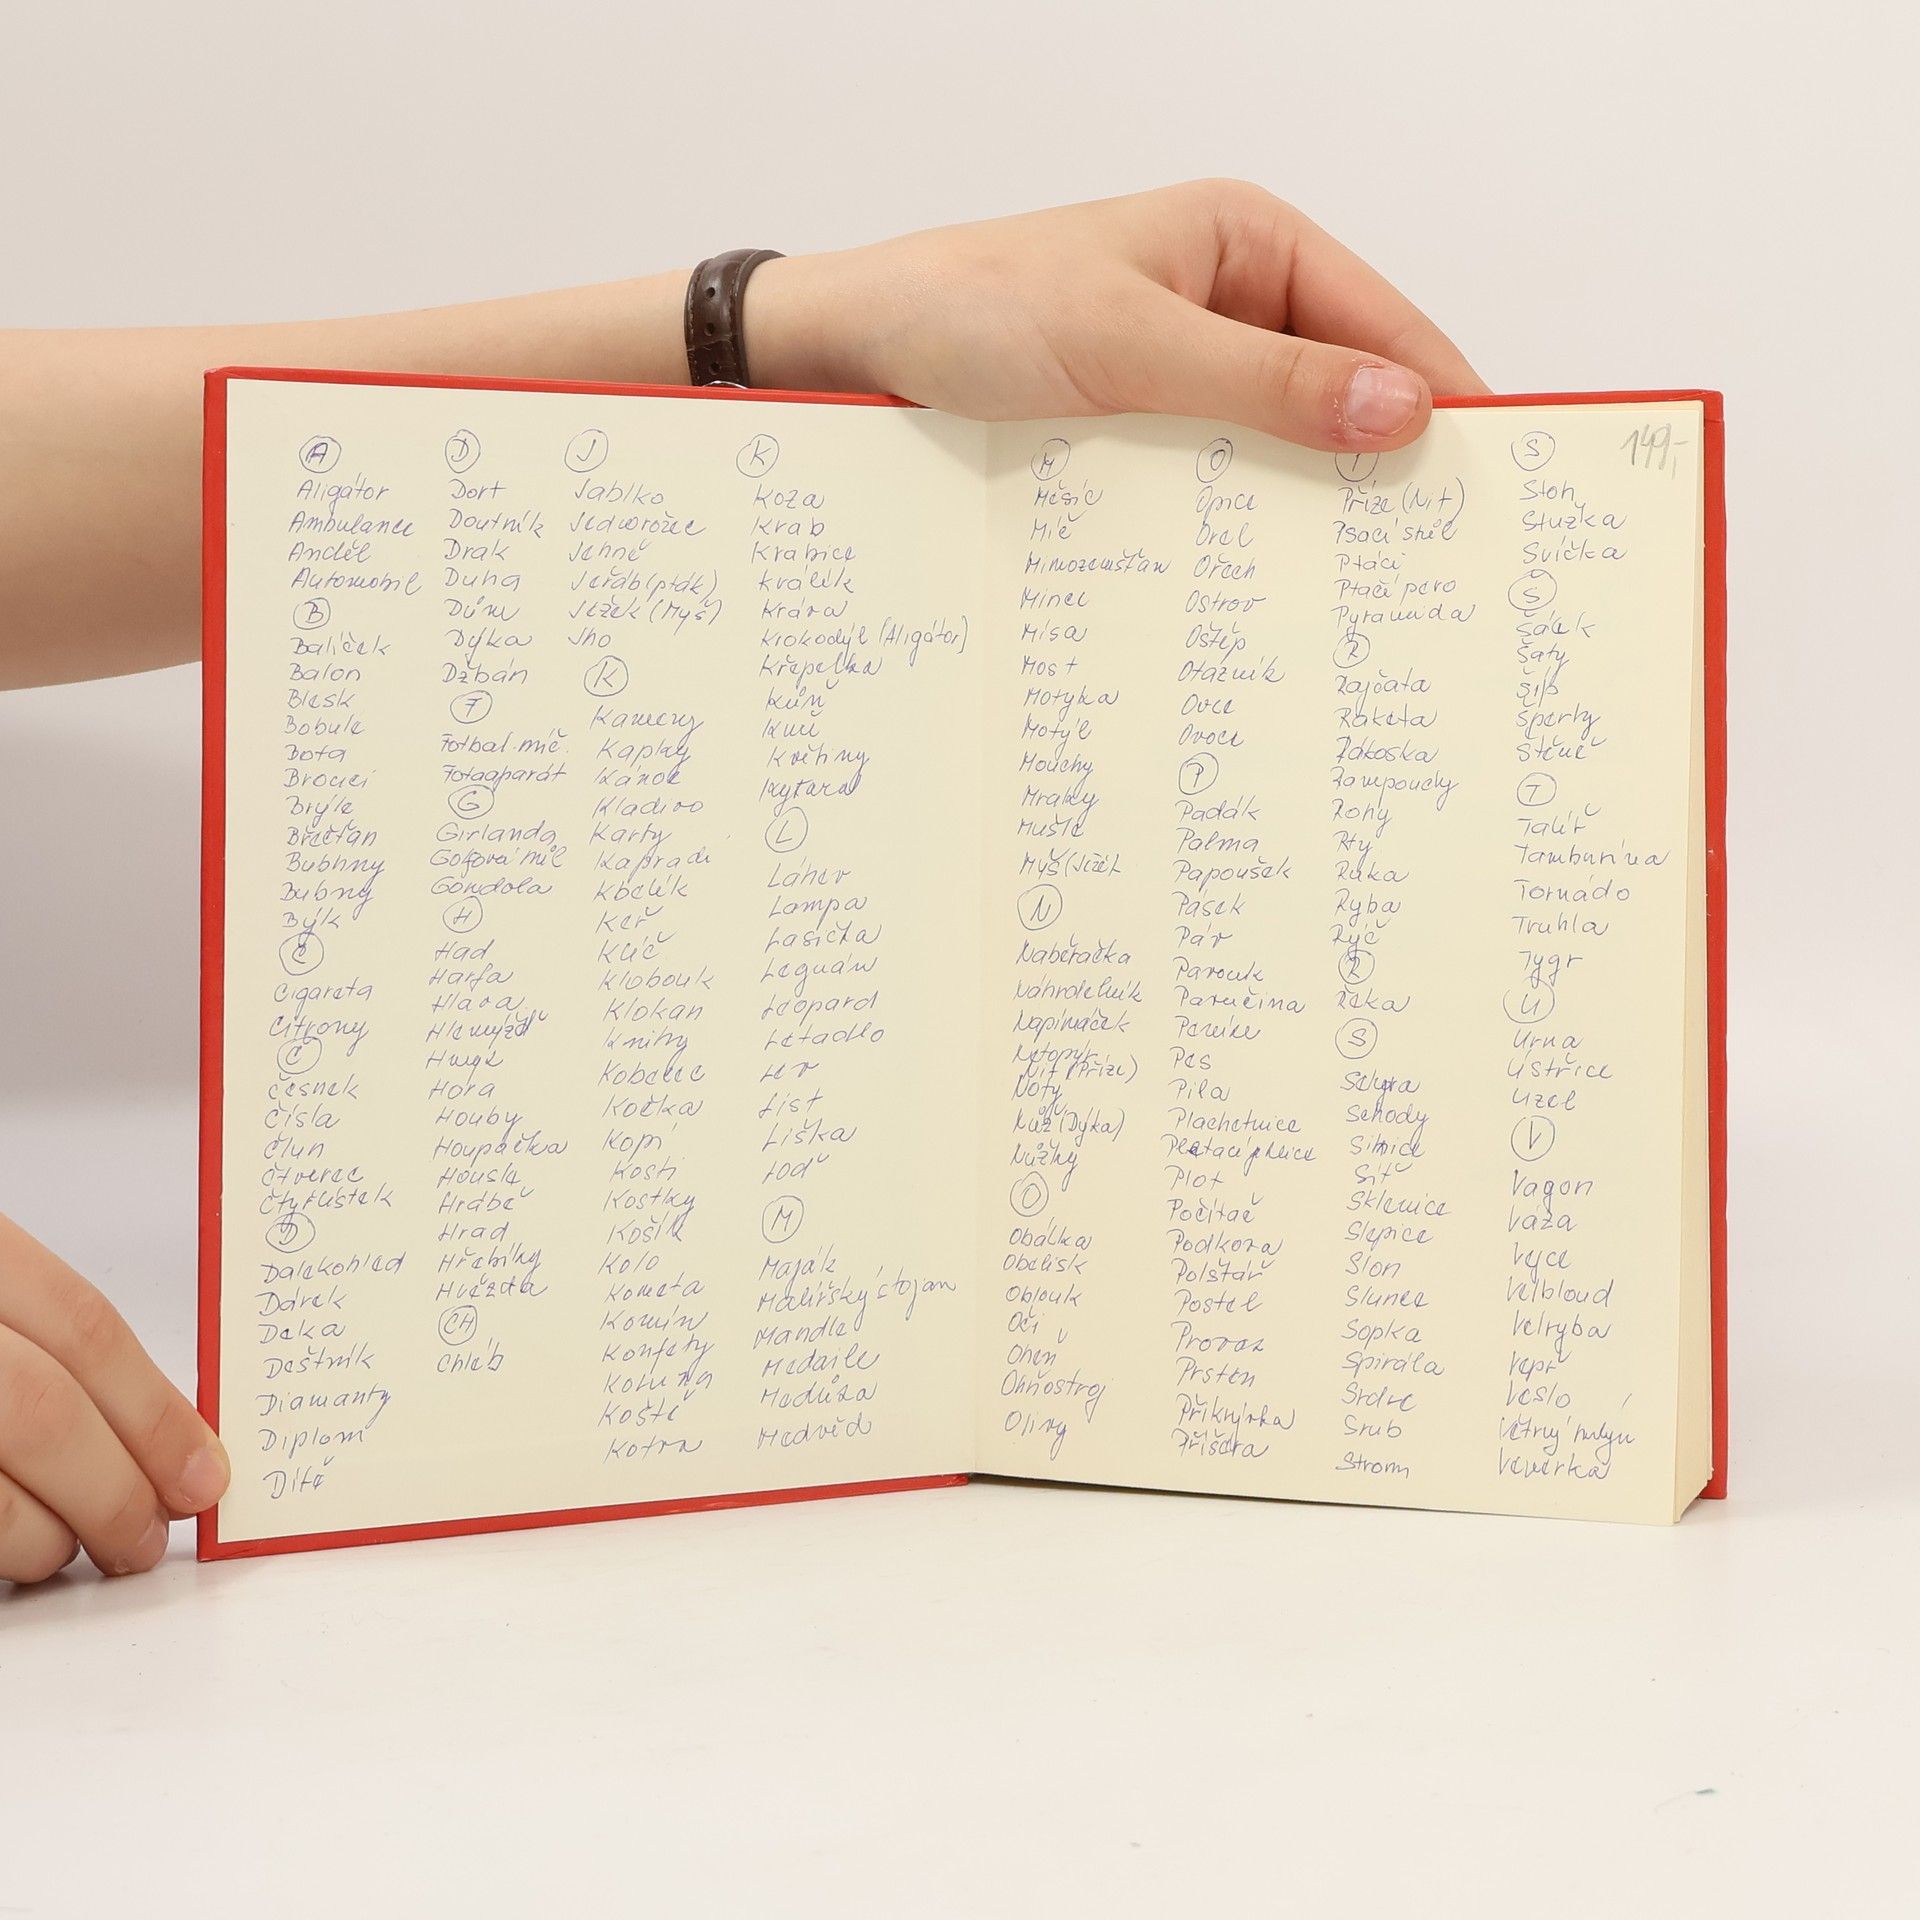 A
Aligátor
Ambulance
Anděl
Automobil
B
Balíček
Balon
Blesk
Bobule
Bota
Brouci
Brýle
Břečťan
Bubny
Býk
C
Cigareta
Citrony
Č
Česnek
Čísla
Člun
Čtverec
Čtyřlístek
D
Dalekohled
Dárek
Deka
Deštník
Diamanty
Diplom
Dítě
D
Dort
Doutník
Drak
Duha
Dům
Dýka
Džbán
F
Fotbal. míč.
Fotoaparát
G
Girlanda
Golfový míč
Gondola
H
Had
Harfa
Hlava
Hlemýžď
Hmyz
Hora
Houby
Houpačka
Housle
Hrábě
Hrad
Hřebíky
Hvězda
CH
Chléb
J
Jablko
Jednorožec
Jehně
Jeřáb (pták)
Ježek (Myš)
Jho
K
Kameny
Kapky
Kánoe
Kladivo
Karty
Kapradí
Kbelík
Keř
Klíč
Klobouk
Klokan
Knihy
Kobelec
Kočka
Kopí
Kosti
Kostky
Košík
Kolo
Kometa
Komín
Konfety
Koruna
Koště
Kotva
K
Koza
Krab
Krabice
Králík
Kráva
Krokodýl (Aligátor)
Křepelka
Kůň
Květiny
Kytara
L
Láhev
Lampa
Lasička
Leguán
Leopard
Letadlo
Lev
List
Liška
Loď
M
Maják
Malířský stojan
Mandle
Medaile
Medúza
Medvěd
M
Měsíc
Míč
Mimozemšťan
Mince
Mísa
Most
Motyka
Motýl
Mouchy
Mraky
Mušle
Myš (Ježek
N
Naběračka
Náhrdelník
Napínáček
Netopýr
Nit (Příze)
Noty
Nůž (Dýka)
Nůžky
O
Obálka
Obelisk
Oblouk
Oči
Oheň
Ohňostroj
Olivy
O
Opice
Orel
Ořech
Ostrov
Oštěp
Otazník
Ovce
Ovoce
P
Padák
Palma
Papoušek
Pásek
Páv
Pavouk
Pavučina
Peníze
Pes
Pila
Plachetnice
Pletací jehlice
Plot
Počítač
Podkova
Polštář
Postel
Provaz
Prsten
Přikrývka
Příšera
Příze (Nit)
Psací stůl
Ptáci
Ptačí pero
Pyramida
R
Rajčata
Raketa
Rákoska
Rampouchy
Rohy
Rty
Ruka
Ryba
Rýč
Ř
Řeka
S
Schody
Silnice
Síť
Sklenice
Slepice
Slon
Slunce
Sopka
Spirála
Srdce
Srub
Strom
S
Stoh
Stužka
Svíčka
Š
Šálek
Šaty
Šíp
Šperky
Štěně
T
Talíř
Tamburína
Tornádo
Truhla
Tygr
U
Urna
Ústřice
Uzel
V
Vagon
Váza
Vejce
Velbloud
Velryba
Vepř
Veslo
Větrný mlýn
Veverka
149,-